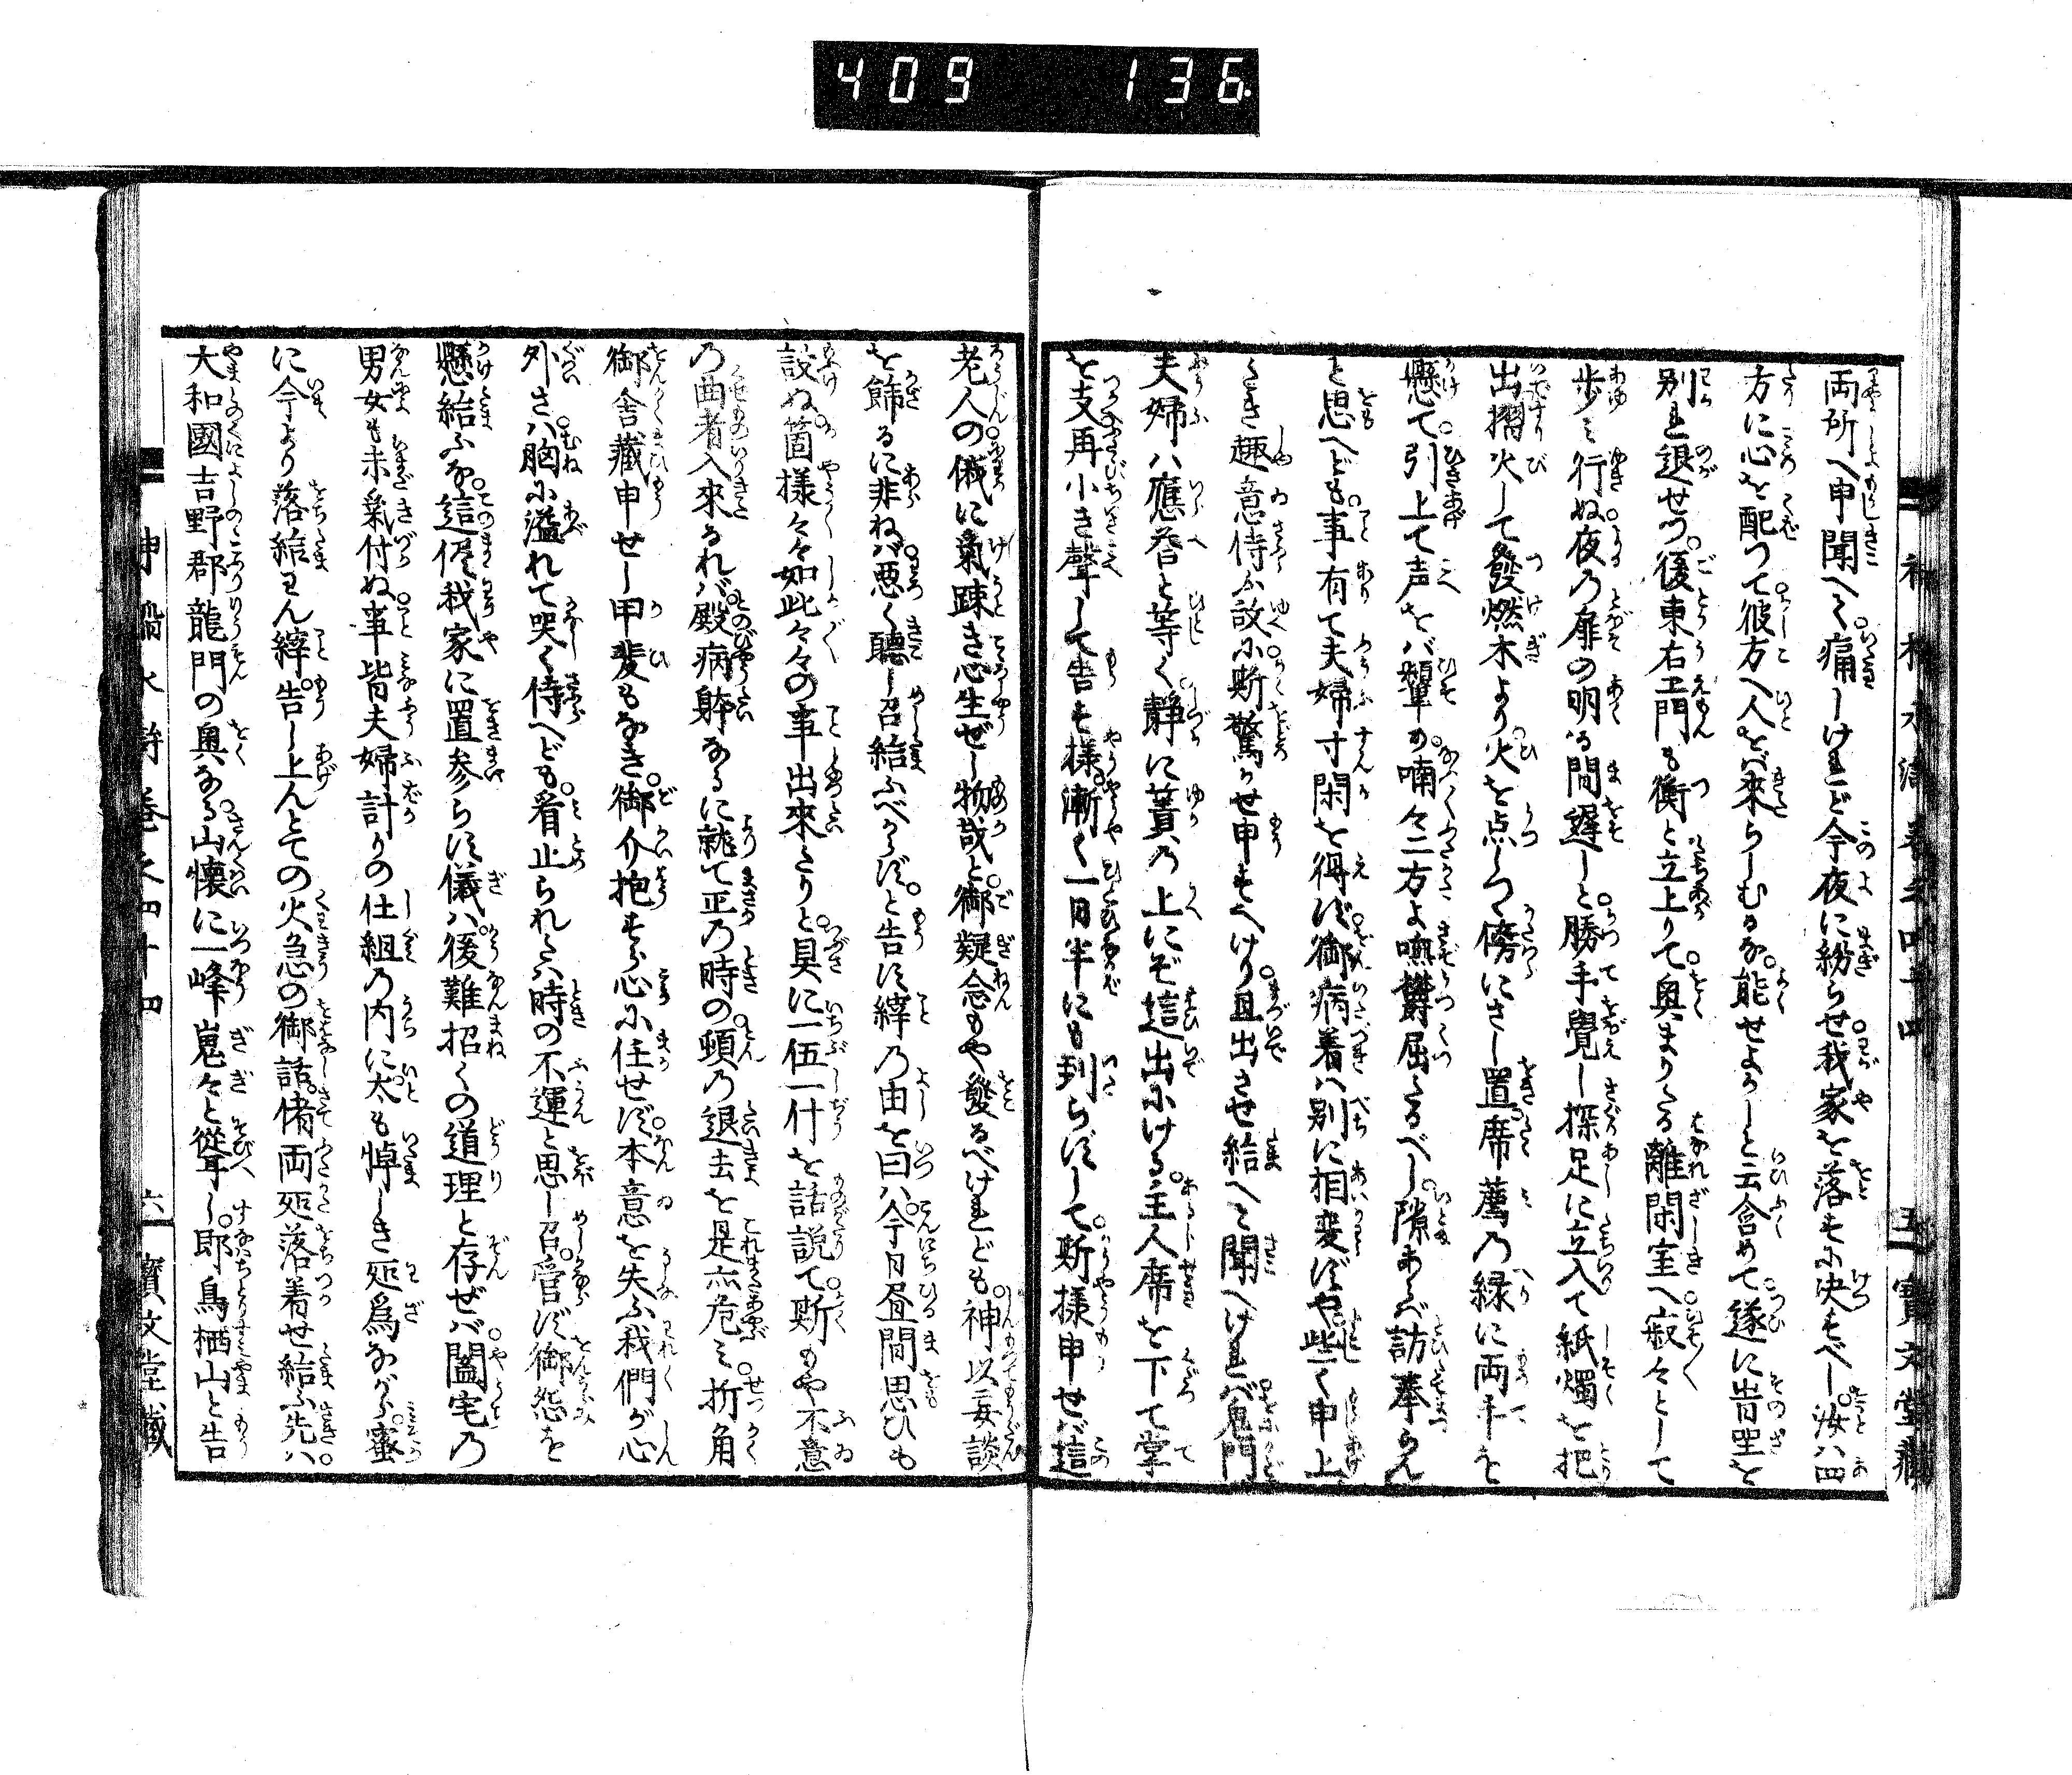 409 136
両所へ申聞へく。痛しけれど今夜に紛らせ我家を落すに决すべし。汝ハ四
方に心を配つて彼方へ人をバ來らしむるな。能せよかしと云含めて。遂に其坐を
別れ退せつ。後東右エ門も衝と立上りて。奥まりたる離閑室へ。寂々として
歩ミ行ぬ。夜乃扉の明る間遅しと。勝手覺し探足に立入て紙燭を把
出摺火して發燃木より。火を点しつ。傍にさし置。席薦乃縁に両手を
懸て。引上て声をバ顰め。喃々二方よ嘸欝屈たるべし。隙あらバ訪奉らん
と思へども。事有て夫婦寸閑を得ず。御病着ハ別に相変ずや。些く申上
たき趣意侍ふ故に。斯驚かせ申すへけり。且出させ給へと聞へけれバ。鬼門
夫婦ハ應答と等く。静に簀乃上にぞ這出にける。主人席を下て掌
を支。再小き聲して告す様。漸く一日半にも到らずして。斯様申せバ。這
老人の俄に氣踈き心生ぜし物哉と。御疑念もや發るべけれども。神以妄談
を餝るに非ねバ。悪く聽し召給ふべからず。と告す縡乃由を曰ハ。今日昼間思ひも
設ぬ箇様々々如此々々の事出來たりと。具に一伍一什を話説て。斯もや不意
乃曲者入來るれバ。殿病躰なるに就て正乃時の。頓乃退去を是亦危ミ。折角
御舎藏申せし甲斐もなき。御介抱すら心に任せず。本意を失ふ我們が心
外さハ。胸に溢れて哭く侍へども。看止られたハ時の不運と思し召。啻ず御怨を
懸給ふな。這侭我家に置参らす儀ハ。後難招くの道理と存ぜバ。闔宅乃
男女も未氣付ぬ事。皆夫婦計りの仕組乃内に。太も悼しき所爲ながら。蜜
に今より落給わん縡。告し上んとての火急の御話。偖両処落着せ給ふ先ハ。
大和國吉野郡龍門の奥なる。山懐に一峰嵬々と聳へし。即鳥栖山と告
五 寳文堂藏
神稲水滸巻之四十四 六 寳文堂藏